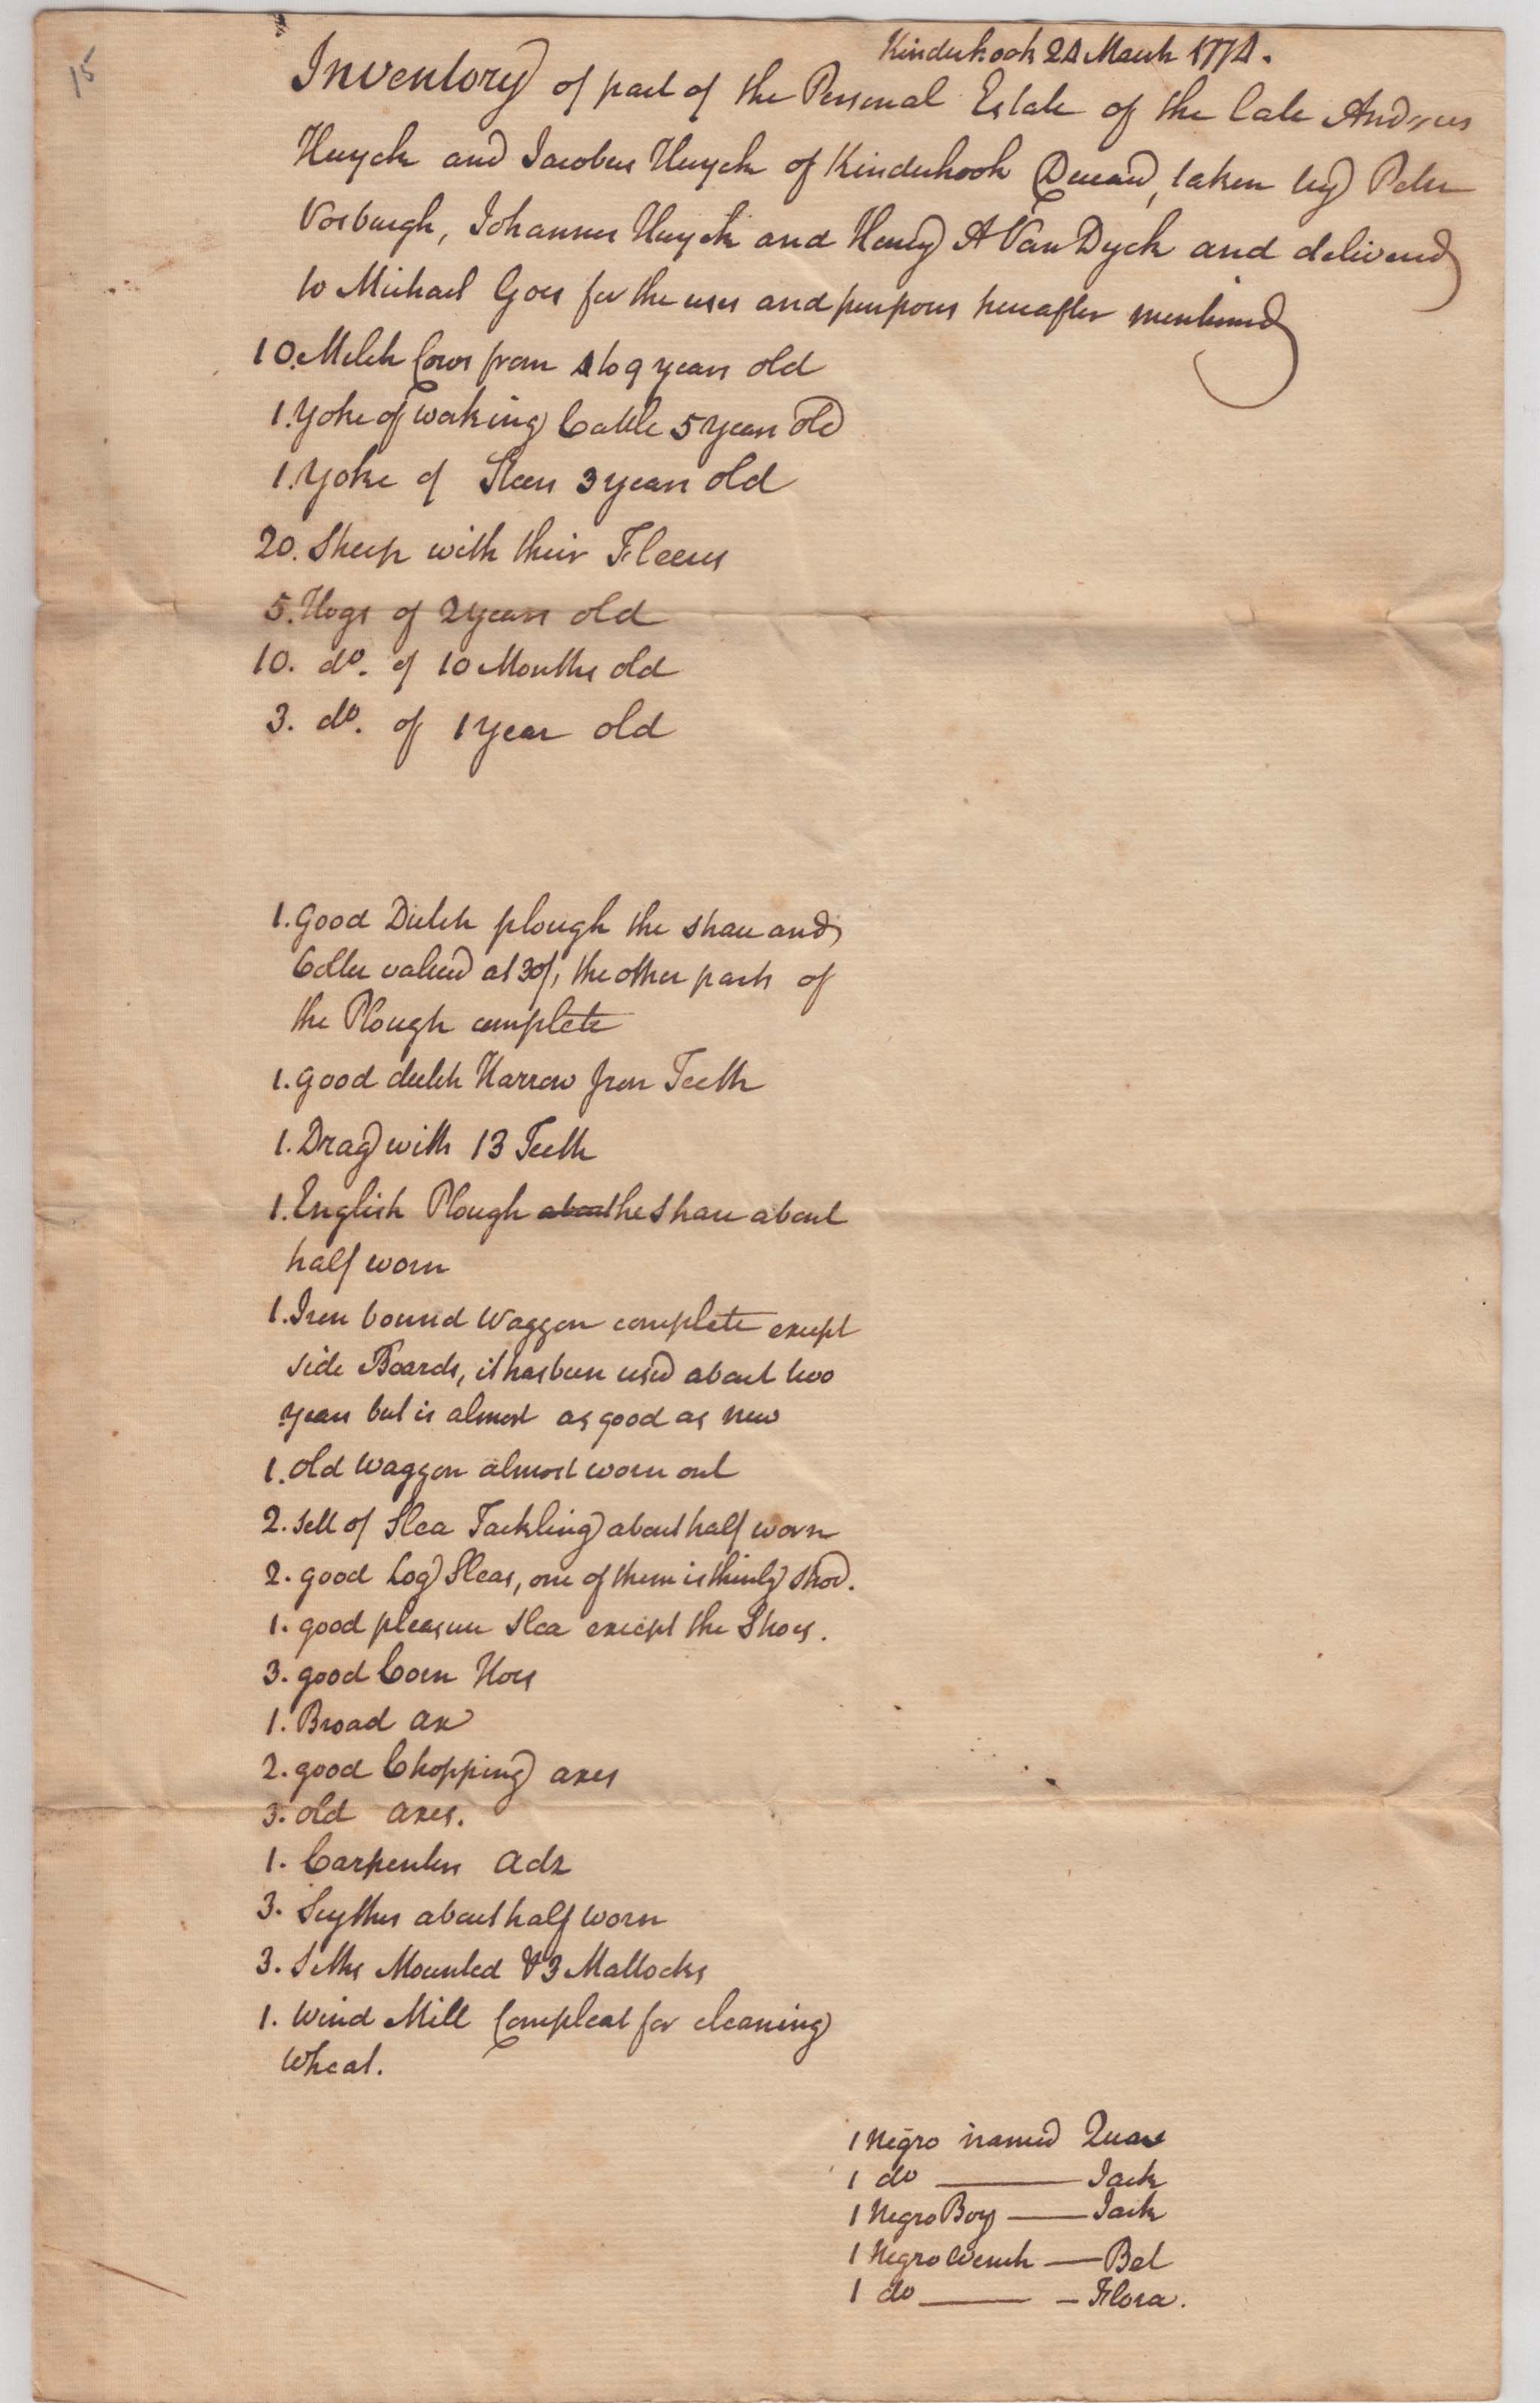 15
Kinderhook 24 March 1774.
Inventory of part of the Personal Estate of the late Andries
Huyck and Jacobus Huyck of Kinderhook Deceasd, taken by Peter
Vosburgh, Johannes Huyck and Henry A Van Dyck and delivered
to Michael Goes for the uses and purposes hereafter mentioned
10. Melch Cows from 4 to 9 years old
1. Yoke of working Cattle 5 years old
1. Yoke of Steers 3 years old
20. Sheep with their Fleeces
5. Hogs of 2 years old
10. do. of 10 Months old
3. do. of 1 year old
1. Good Dutch plough the share and
Colter valued at 30/, the other parts of
the Plough complete
1. good dutch Harrow Iron Teeth
1. Drag with 13 Teeth
1. English Plough about the Share about
half worn
1. Iron bound Waggon complete except
side Boards, it has been used about two
years but is almost as good as new
1. old Waggon almost worn out
2. sett of Slea Tackling about half worn
2. good Log Sleas, one of them is thinly shod.
1. good pleasure slea except the Shoes.
3. good Corn Hoes
1. Broad ax
2. good Chopping axes
3. old axes.
1. Carpenters Adz
3. Scythes about half worn
3. Siths Mounted & 3 Mattocks
1. Wind Mill Compleat for cleaning
Wheat.
1 Negro named Quas
1 do Jack
1 Negro Boy Jack
1 Negro Wench Bet
1 do Flora.